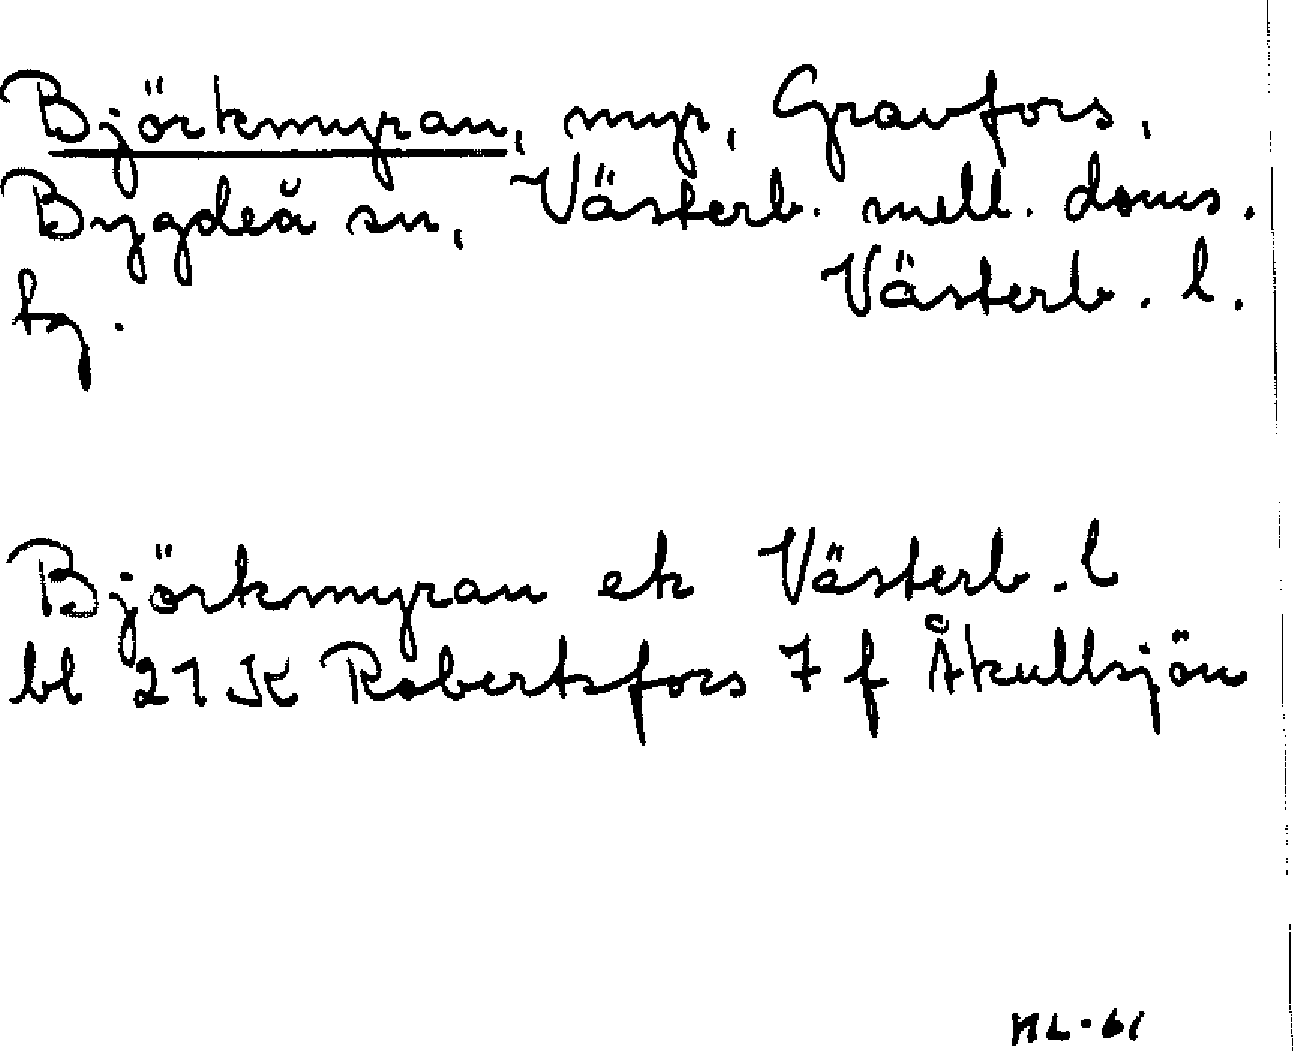 Björkmyran, myr, Gravfors,
Bygdeå sn, Västerb. mell. doms.
tg. Västerb. l.
Björkmyran ek Västerb. l
bl 21 K Robertsfors 7 f Åkullsjön
NL-61